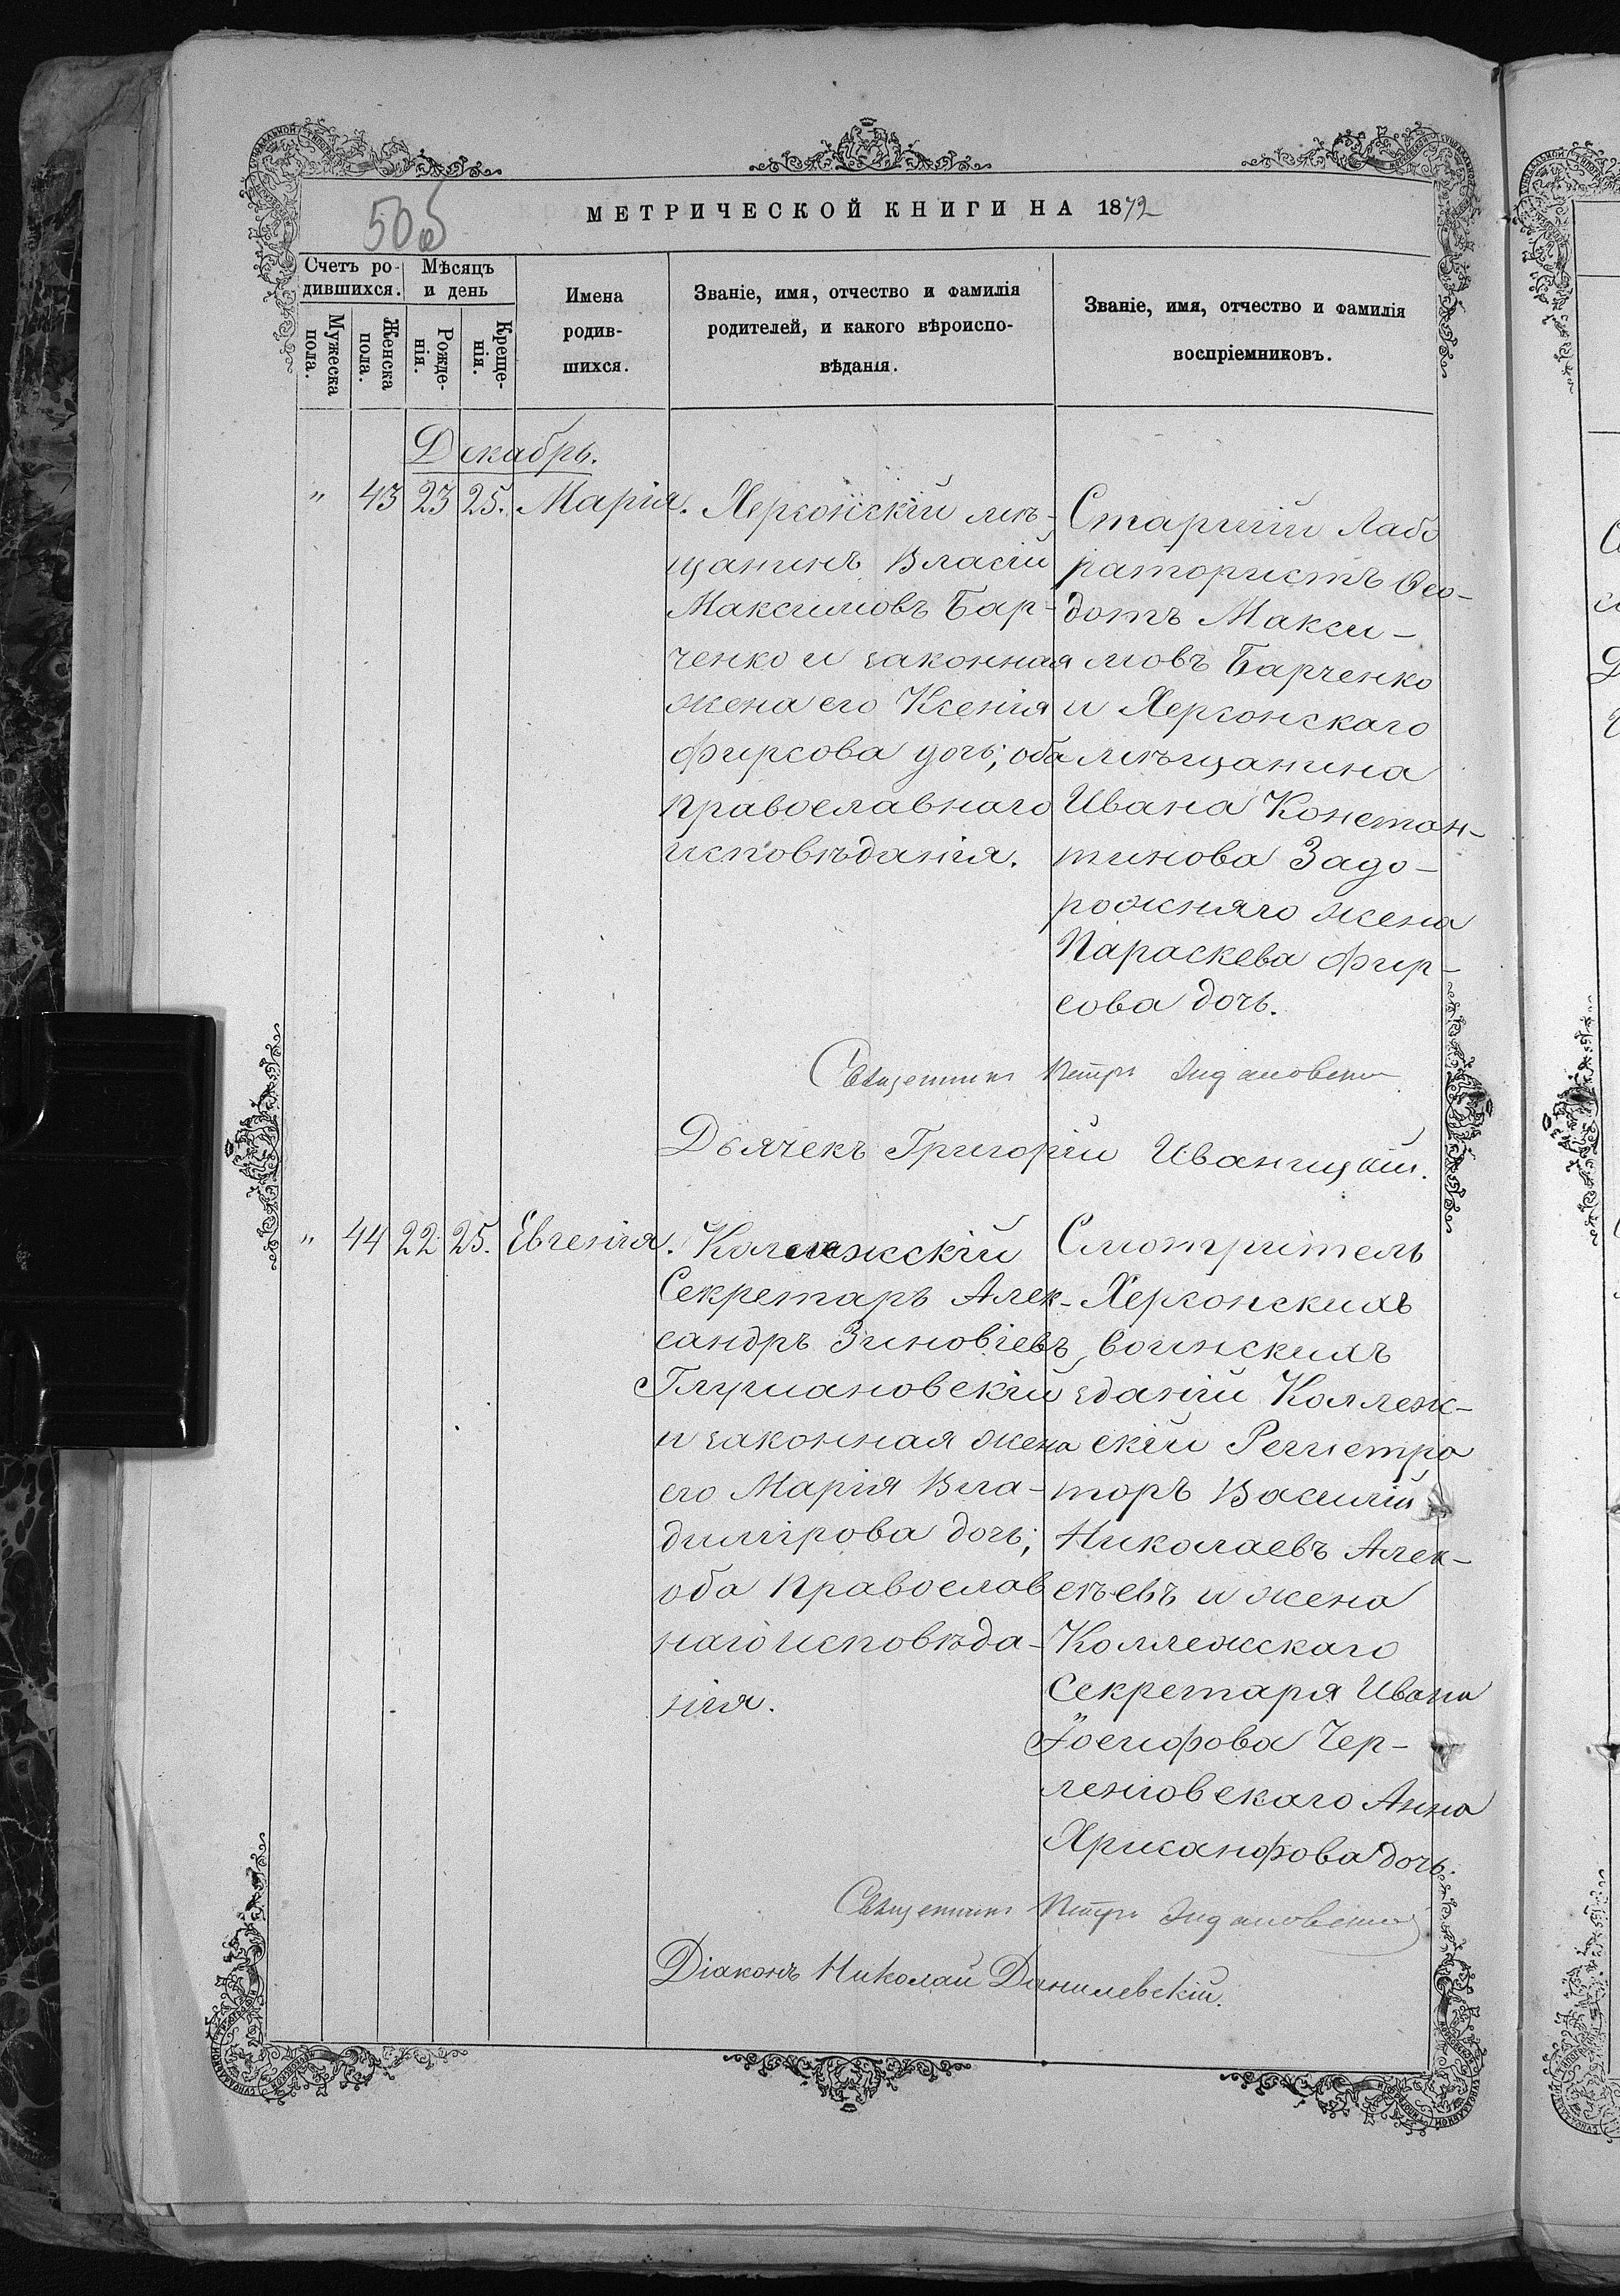 50об
МЕТРИЧЕСКОЙ КНИГИ НА 1872
Счетъ ро-
дившихся.
Мѣсяцъ
и день
Мужеска
пола.
Женска
пола.
Рожде-
нія.
Креще-
нія.
Имена
родив-
шихся.
Званіе, имя, отчество и фамилія
родителей, и какого вѣроиспо-
вѣданія.
Званіе, имя, отчество и фамилія
воспріемниковъ.
Декабрь.
" 43 23 25. Марія.
Херсонскій мѣ-
щанинъ Власій
Максимовъ Бар-
ченко и законная
жена его Ксенія
Фирсова дочь; оба
православнаго
исповѣданія.
Старшій Лабо
ратористъ Ѳео-
дотъ Макси-
мовъ Барченко
и Херсонскаго
мѣщанина
Ивана Констан-
тинова Задо-
рожняго жена
Параскева Фир-
сова дочь.
Священникъ Петръ
Дьячекъ Григорій Иваницкій.
" 44 22 25. Евгенія.
Коллежскій
Секретарь Алек-
сандръ Зиновіевъ
и законная жена
его Марія Вла-
димірова дочь;
оба православ
наго исповѣда-
нія.
Смотритель
Херсонскихъ
воинскихъ
зданій Коллеж-
скій Регистра
торъ Василій
Николаевъ Алек-
сѣевъ и жена
Коллежскаго
Секретаря Ивана
Іосифова Чер-
леніовскаго Анна
Хрисанфова дочь.
Священникъ Петръ
Діаконъ Николай Данилевскій.